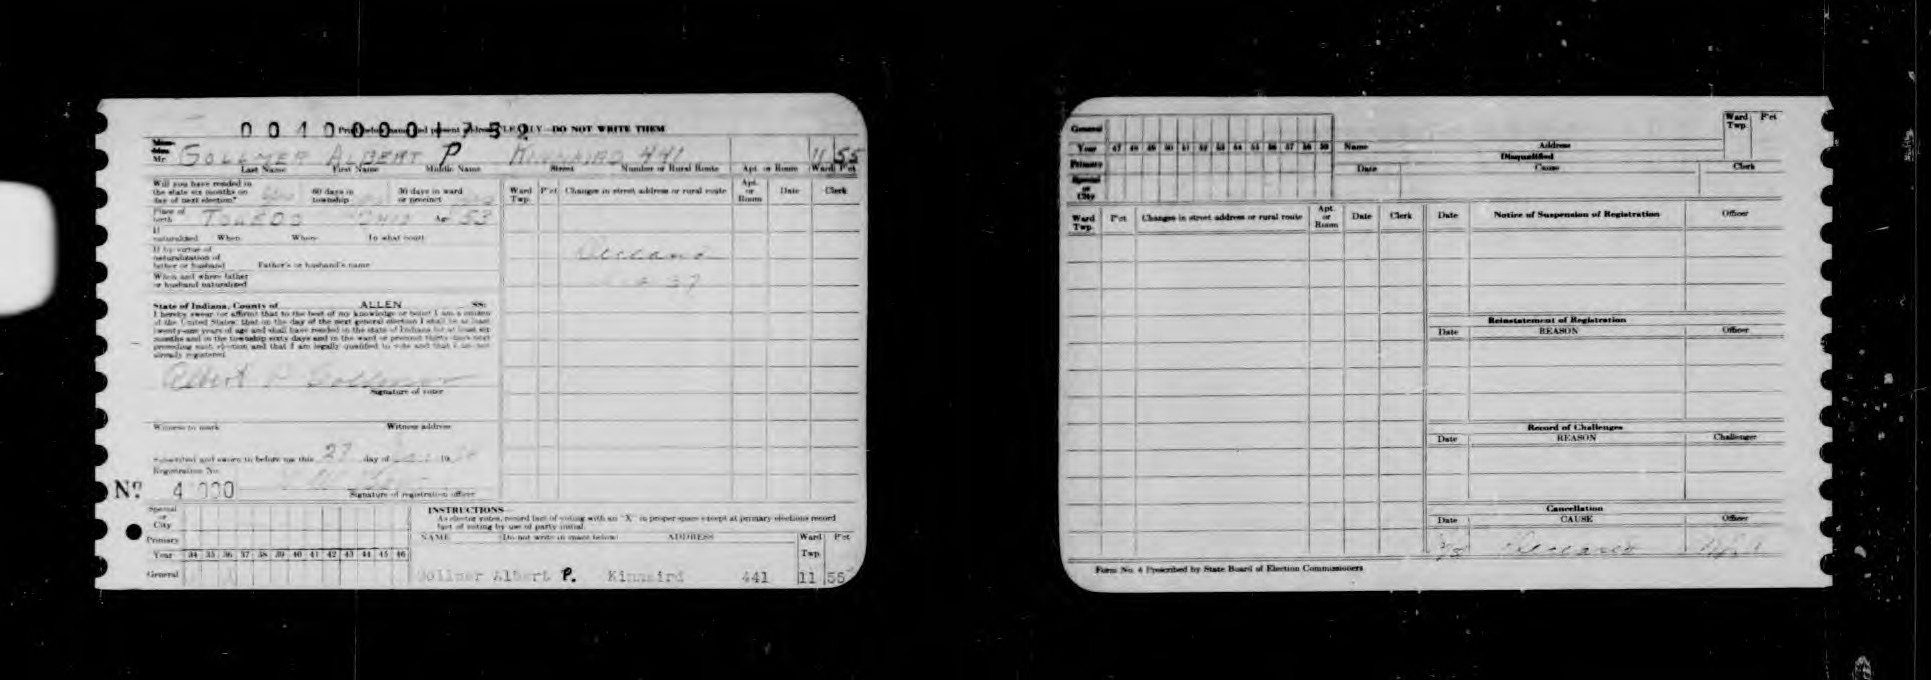 00100001752
CLEARLY—DO NOT WRITE THEM
Mr. GOLLMER ALBERT P KINNAIRD 441 11 55
Last Name First Name Middle Name Street Number or Rural Route Apt. or Room Ward P'ct
Will you have resided in the state six months on day of next election? 60 days in township 30 days in ward or precinct
Place of birth TOLEDO OHIO Age 53
If naturalized When Where In what court
If by virtue of naturalization of father or husband Father's or husband's name
When and where father or husband naturalized
Ward Twp. P'ct Changes in street address or rural route Apt. or Room Date Clerk
Deceased
37
State of Indiana, County of ALLEN SS:
I hereby swear (or affirm) that to the best of my knowledge or belief I am a citizen
of the United States; that on the day of the next general election I shall be at least
twenty-one years of age and shall have resided in the state of Indiana for at least six
months and in the township sixty days and in the ward or precinct thirty days next
preceding such election and that I am legally qualified to vote and that I am not
already registered
Albert P Gollmer
Signature of voter
Witness to mark Witness address
Subscribed and sworn to before me this 27 day of 19
Registration No.
No. 4 000
Signature of registration officer
Special or City
Primary
Year 34 35 36 37 38 39 40 41 42 43 44 45 46
General
INSTRUCTIONS—
As elector votes, record fact of voting with an "X" in proper space except at primary elections record
fact of voting by use of party initial.
NAME (Do not write in space below) ADDRESS Ward Twp. P'ct
Gollmer Albert P. Kinnaird 441 11 55
General
Year 47 48 49 50 51 52 53 54 55 56 57 58 59
Primary
Special or City
Ward Twp. P'ct
Name Address
Disqualified
Date Cause Clerk
Ward Twp. P'ct Changes in street address or rural route Apt. or Room Date Clerk
Date Notice of Suspension of Registration Officer
Reinstatement of Registration
Date REASON Officer
Record of Challenges
Date REASON Challenger
Cancellation
Date CAUSE Officer
Deceased
Form No. 4 Prescribed by State Board of Election Commissioners